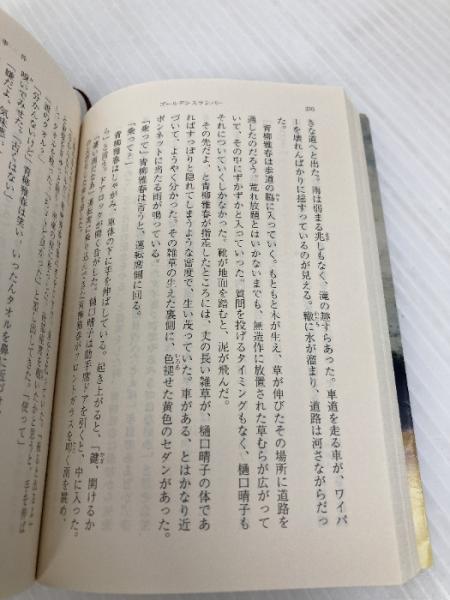 ゴールデンスランバー
きな道へと出た。雨は弱まる兆しもなく、滝の趣すらあった。車道を走る車が、ワイパ
ーを壊れんばかりに揺すっているのが見える。轍に水が溜まり、道路は河さながらだっ
た。
青柳雅春は歩道の脇に入っていく。もともと木が生え、草が伸びたその場所に道路を
通したのだろう。荒れ放題とはいかないまでも、無造作に放置された草むらが広がって
いて、その中にずかずかと入っていく。質問を投げるタイミングもなく、樋口晴子も
それについていくしかなかった。靴が地面を踏むと、泥が飛んだ。
その先だよ、と青柳雅春が指差したところには、丈の長い雑草が、樋口晴子の体であ
ればすっぽりと隠れてしまうような密度で、生い茂っていた。車がある、とはかなり近
づいて、ようやく分かった。その雑草の生えた裏側に、色褪せた黄色のセダンがあった。
ボンネットに当たる雨が鳴っている。
「乗って」青柳雅春は言うと、運転席側に回る。
「乗って?」
青柳雅春はしゃがみ、車体の下に手を伸ばしている。起き上がると、「鍵、開けるか
ら」と言う。ドアロックが開く音がした。樋口晴子は助手席ドアを引くと、中に入った。
「凄い雨だなあ」運転席に
青柳雅春がフロントガラスを叩く雨を眺め、
「使って」
「分かんないけど」青柳雅春は笑い、いったんタオルを鼻に近づけ
嗅いでみせた。「古くはない」
「嫌だよ、気味悪い」